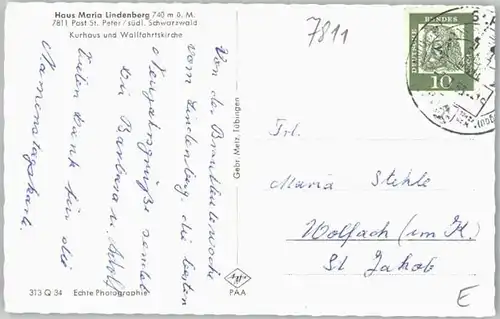 Haus Maria Lindenberg 740 m ü. M.
7811 Post St. Peter / südl. Schwarzwald
Kurhaus und Wallfahrtskirche
Von der Brautleutewoche
vom Lindenberg die besten
Neujahrsgrüße sendet
Barbara u. Adolf
Vielen Dank für die
Namenstagskarte.
313 Q 34 Echte Photographie
Gebr. Metz, Tübingen
PAA
7811
DEUTSCHE BUNDESPOST
10
Frl.
Maria Stehle
Wolfach (im K.)
St Jakob
E